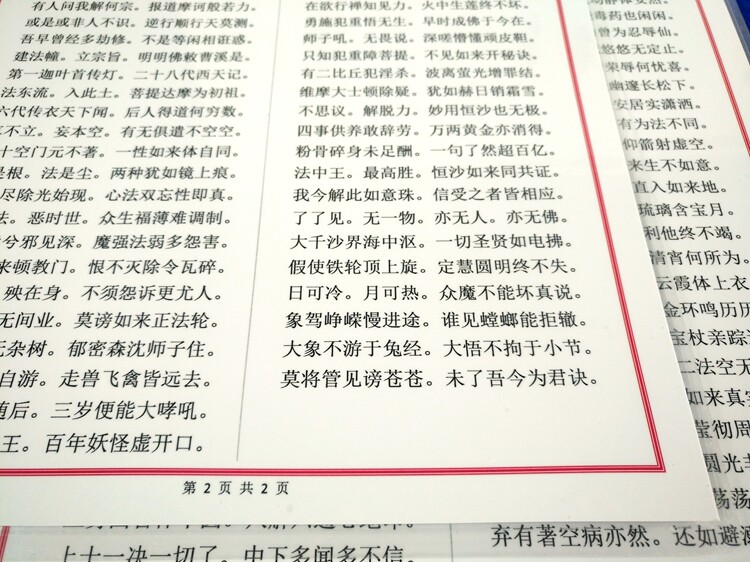 有人问我解何宗。报道摩诃般若力。
或是或非人不识。逆行顺行天莫测。
吾早曾经多劫修。不是等闲相诳惑。
建法幢。立宗旨。明明佛敕曹溪是。
第一迦叶首传灯。二十八代西天记。
法东流。入此土。菩提达摩为初祖。
六代传衣天下闻。后人得道何穷数。
不立。妄本空。有无俱遣不空空。
十空门元不著。一性如来体自同。
是根。法是尘。两种犹如镜上痕。
尽除光始现。心法双忘性即真。
法。恶时世。众生福薄难调制。
兮邪见深。魔强法弱多怨害。
来顿教门。恨不灭除令瓦碎。
殃在身。不须怨诉更尤人。
无间业。莫谤如来正法轮。
无杂树。郁密森沈师子住。
自游。走兽飞禽皆远去。
随后。三岁便能大哮吼。
王。百年妖怪虚开口。
在欲行禅知见力。火中生莲终不坏。
勇施犯重悟无生。早时成佛于今在。
师子吼。无畏说。深嗟懵懂顽皮靼。
只知犯重障菩提。不见如来开秘诀。
有二比丘犯淫杀。波离萤光增罪结。
维摩大士顿除疑。犹如赫日销霜雪。
不思议。解脱力。妙用恒沙也无极。
四事供养敢辞劳。万两黄金亦消得。
粉骨碎身未足酬。一句了然超百亿。
法中王。最高胜。恒沙如来同共证。
我今解此如意珠。信受之者皆相应。
了了见。无一物。亦无人。亦无佛。
大千沙界海中沤。一切圣贤如电拂。
假使铁轮顶上旋。定慧圆明终不失。
日可冷。月可热。众魔不能坏真说。
象驾峥嵘慢进途。谁见螳螂能拒辙。
大象不游于兔经。大悟不拘于小节。
莫将管见谤苍苍。未了吾今为君诀。
第 2 页 共 2 页
毒药也闲闲。
曾为忍辱仙。
悠悠无定止。
荣辱何忧喜。
幽邃长松下。
安居实潇洒。
有为法不同。
仰箭射虚空。
来生不如意。
直入如来地。
琉璃含宝月。
利他终不竭。
清宵何所为。
云霞体上衣
金环鸣历历
宝杖亲踪
二法空无
如来真实
莹彻周
圆光
荡荡
弃有著空病亦然。还如避溺
上士一决一切了。中下多闻多不信。